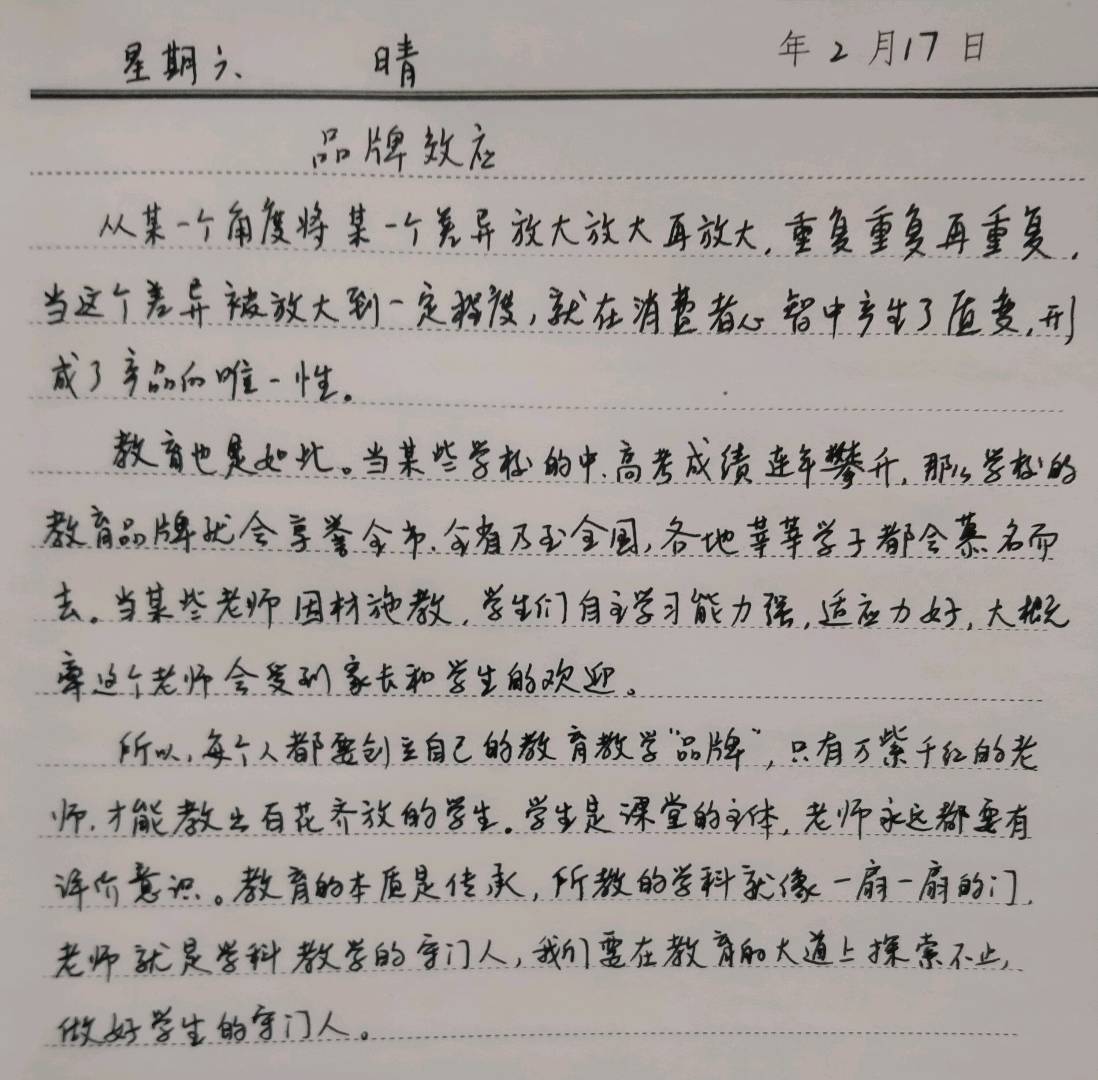 星期六 晴 年2月17日
品牌效应
从某一个角度将某一个差异放大放大再放大,重复重复再重复,
当这个差异被放大到一定程度,就在消费者心智中产生了质变,形
成了产品的唯一性。
教育也是如此。当某些学校的中、高考成绩连年攀升,那么学校的
教育品牌就会享誉全市、全省乃至全国,各地莘莘学子都会慕名而
去。当某些老师因材施教,学生们自主学习能力强,适应力好,大概
率这个老师会受到家长和学生的欢迎。
所以,每个人都要创立自己的教育教学“品牌”,只有万紫千红的老
师,才能教出百花齐放的学生。学生是课堂的主体,老师永远都要有
评价意识。教育的本质是传承,所教的学科就像一扇一扇的门,
老师就是学科教学的守门人,我们要在教育的大道上探索不止,
做好学生的守门人。